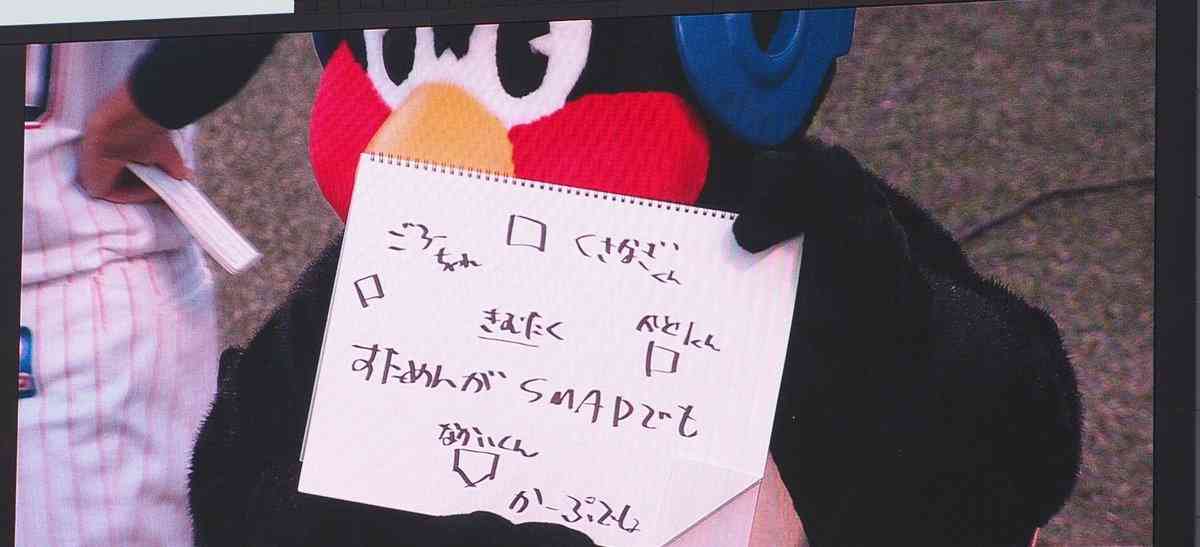 ごろー
ちゃん
くさなぎ
くん
きむたく
かとりくん
すためんが SMAPでも
なかいくん
かーぷでしょ